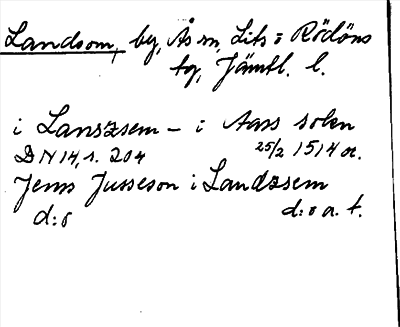 Landsom, by, Ås sn, Lits o Rödöns
tg, Jämtl. l.
i Lanszsem – i Aass sokn
DN 14, s. 204 25/2 1514 or.
Jenss Jusseson i Landzsem
d:o d:o a. t.